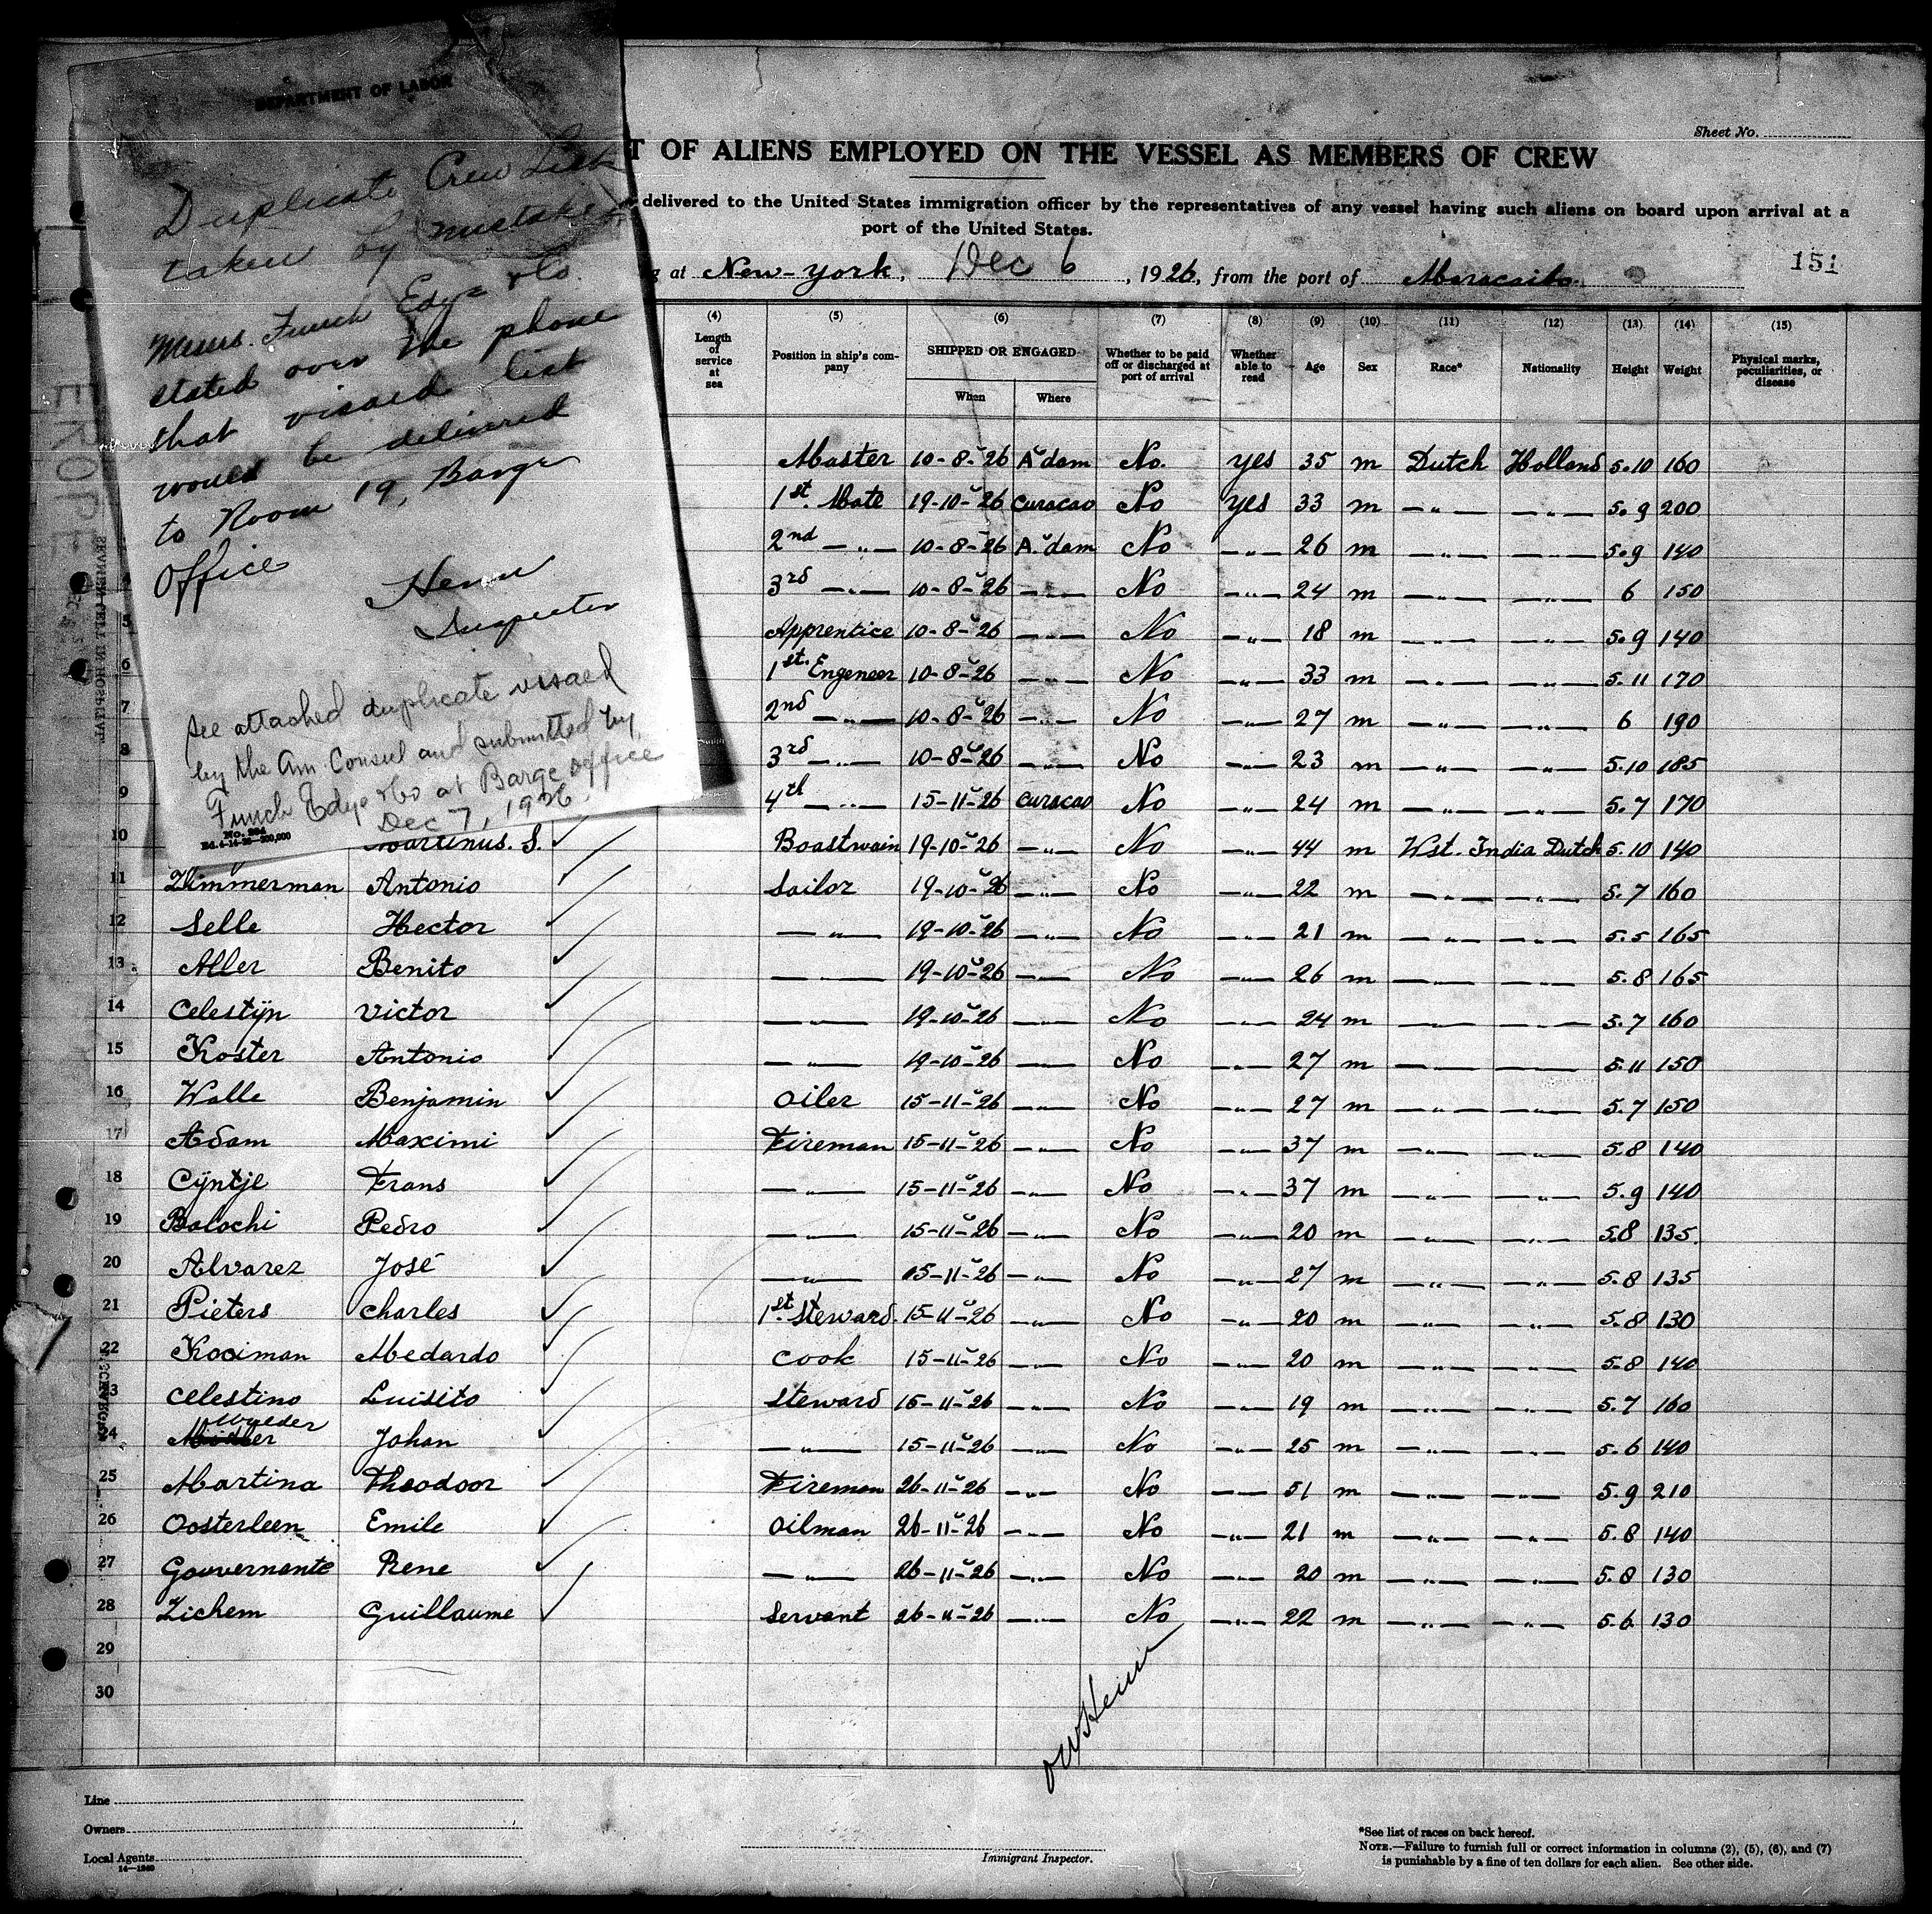 DEPARTMENT OF LABOR
Duplicate Crew List
taken by mistake
Messrs. Funch Edye & Co.
stated over the phone
that visaed list
would be delivered
to Room 19, Barge
Office
Inspector
See attached duplicate visaed
by the Am Consul and submitted by
Funch Edye & Co at Barge office
Dec 7, 1926.
Sheet No.
T OF ALIENS EMPLOYED ON THE VESSEL AS MEMBERS OF CREW
delivered to the United States immigration officer by the representatives of any vessel having such aliens on board upon arrival at a
port of the United States.
at New-york, Dec 6, 1926, from the port of Maracaibo
151
(4) (5) (6) (7) (8) (9) (10) (11) (12) (13) (14) (15)
Length of service at sea Position in ship's company SHIPPED OR ENGAGED When Where Whether to be paid off or discharged at port of arrival Whether able to read Age Sex Race* Nationality Height Weight Physical marks, peculiarities, or disease
Master 10-8-26 A'dam No. yes 35 m Dutch Holland 5.10 160
1st. Mate 19-10-26 Curacao No yes 33 m —"— —"— 5.9 200
2nd —"— 10-8-26 A'dam No —"— 26 m —"— —"— 5.9 140
3rd —"— 10-8-26 —"— No —"— 24 m —"— —"— 6 150
5 Apprentice 10-8-26 —"— No —"— 18 m —"— —"— 5.9 140
6 1st. Engeneer 10-8-26 —"— No —"— 33 m —"— —"— 5.11 170
7 2nd —"— 10-8-26 —"— No —"— 27 m —"— —"— 6 190
8 3rd —"— 10-8-26 —"— No —"— 23 m —"— —"— 5.10 185
9 4th —"— 15-11-26 Curacao No —"— 24 m —"— —"— 5.7 170
10 Martinus. S. Boastwain 19-10-26 —"— No —"— 44 m Wst. India Dutch 5.10 140
11 Zimmerman Antonio Sailor 19-10-26 —"— No —"— 22 m —"— —"— 5.7 160
12 Selle Hector —"— 19-10-26 —"— No —"— 21 m —"— —"— 5.5 165
13 Aller Benito —"— 19-10-26 —"— No —"— 26 m —"— —"— 5.8 165
14 Celestijn Victor —"— 19-10-26 —"— No —"— 24 m —"— —"— 5.7 160
15 Koster Antonio —"— 19-10-26 —"— No —"— 27 m —"— —"— 5.11 150
16 Walle Benjamin Oiler 15-11-26 —"— No —"— 27 m —"— —"— 5.7 150
17 Adam Maximi Fireman 15-11-26 —"— No —"— 37 m —"— —"— 5.8 140
18 Cijntje Frans —"— 15-11-26 —"— No —"— 37 m —"— —"— 5.9 140
19 Balochi Pedro —"— 15-11-26 —"— No —"— 20 m —"— —"— 5.8 135.
20 Alvarez José —"— 15-11-26 —"— No —"— 27 m —"— —"— 5.8 135
21 Pieters Charles 1st. Steward. 15-11-26 —"— No —"— 20 m —"— —"— 5.8 130
22 Kooiman Medardo Cook 15-11-26 —"— No —"— 20 m —"— —"— 5.8 140
23 Celestino Luisito Steward 15-11-26 —"— No —"— 19 m —"— —"— 5.7 160
24 Mulder Johan —"— 15-11-26 —"— No —"— 25 m —"— —"— 5.6 140
25 Martina Theodoor Fireman 26-11-26 —"— No —"— 51 m —"— —"— 5.9 210
26 Oosterleen Emile Oilman 26-11-26 —"— No —"— 21 m —"— —"— 5.8 140
27 Gouvernante Rene —"— 26-11-26 —"— No —"— 20 m —"— —"— 5.8 130
28 Zichem Guillaume Servant 26-11-26 —"— No —"— 22 m —"— —"— 5.6 130
29
30
Line
Owners
Local Agents
14—1240
Immigrant Inspector.
*See list of races on back hereof.
NOTE.—Failure to furnish full or correct information in columns (2), (5), (6), and (7)
is punishable by a fine of ten dollars for each alien. See other side.